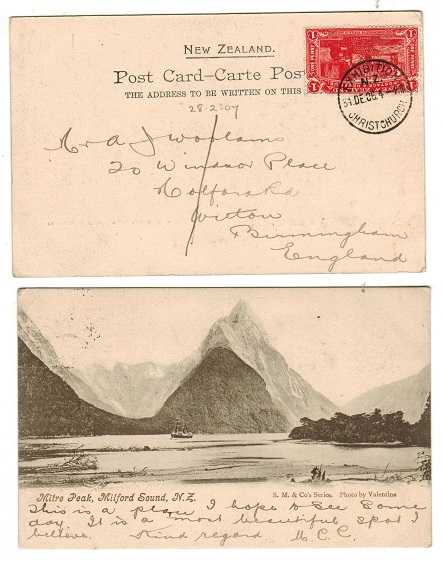 NEW ZEALAND.
Post Card–Carte Pos
THE ADDRESS TO BE WRITTEN ON THIS
28-2-07
1
1
EXHIBITION
N.Z.
31.DE.06.4
CHRISTCHURCH
Mr A J Woollams
20 Windsor Place
Holford Rd
Witton
Birmingham
England
Mitre Peak, Milford Sound, N.Z.
S. M. & Co's Series. Photo by Valentine
This is a place I hope to see some
day. It is a most beautiful spot I
believe. Kind regard M.C.C.